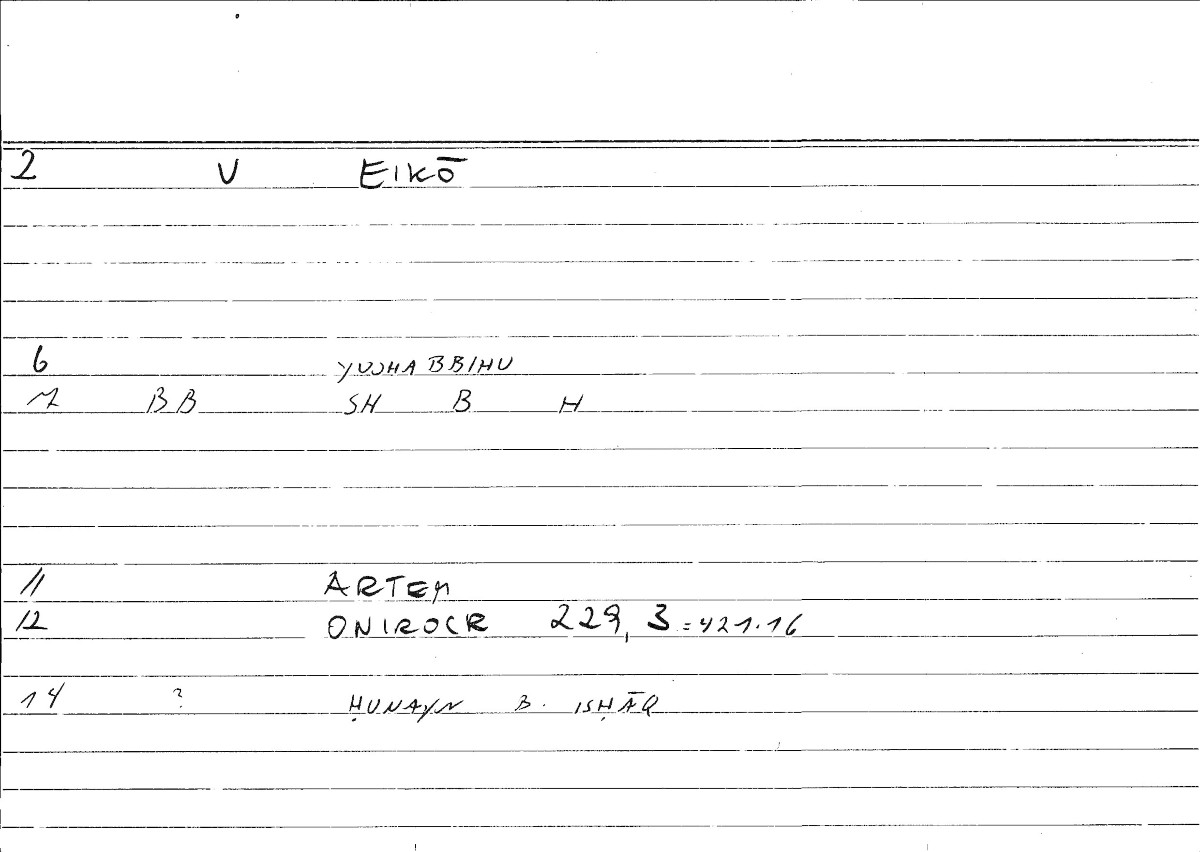 2 V EIKŌ
6 YUSHABBIHU
7 BB SH B H
11 ARTEM
12 ONIROCR 229, 3 = 421.16
14 ? ḤUNAYN B. ISḤĀQ